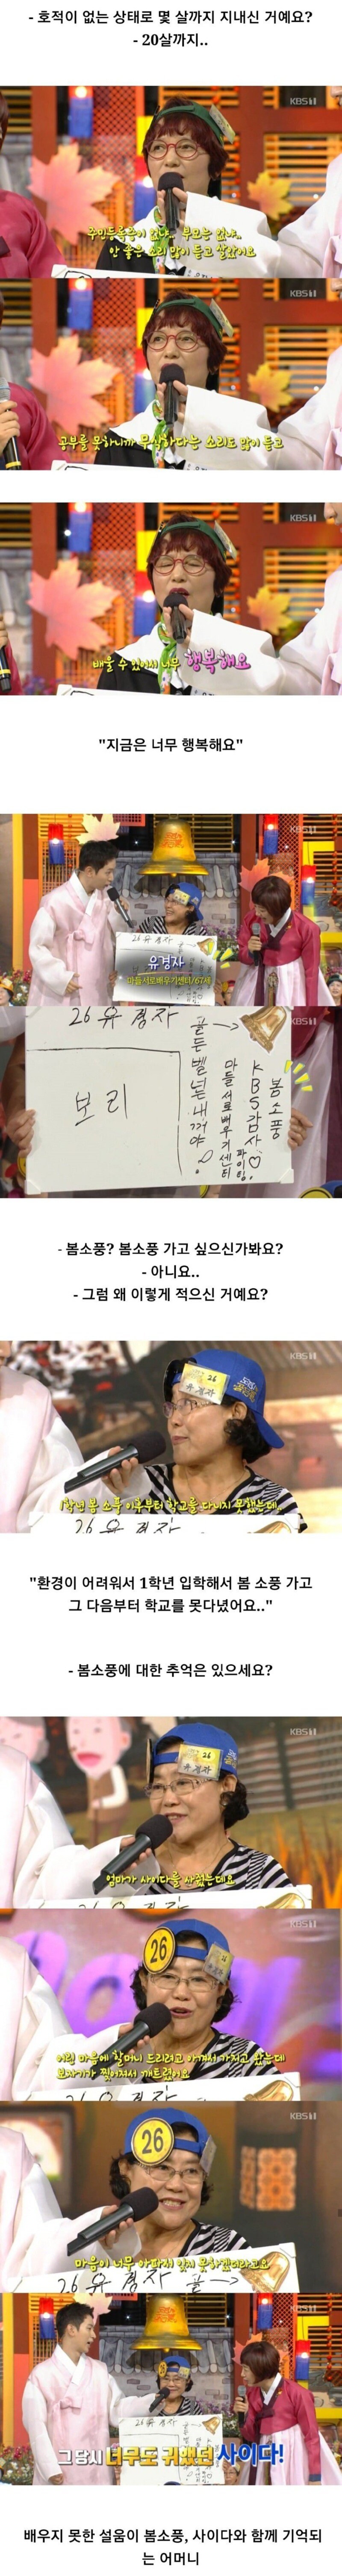 - 호적이 없는 상태로 몇 살까지 지내신 거예요?
- 20살까지..
KBS 1
주민등록증이 없냐.. 부모는 없냐..
안 좋은 소리 많이 듣고 살았어요
KBS 1
공부를 못하니까 무식하다는 소리도 많이 듣고
KBS 1
배울 수 있어서 너무 행복해요
"지금은 너무 행복해요"
KBS 1
26 유경자
유경자
마들서로배우기센터/67세
KBS 1
26 유경자
보리
골든벨 넌 내꺼야.
마들서로배우기센터
파이팅.
KBS 감사♡
봄소풍
- 봄소풍? 봄소풍 가고 싶으신가봐요?
- 아니요..
- 그럼 왜 이렇게 적으신 거예요?
KBS 1
유경자
1학년 봄 소풍 이후부터 학교를 다니지 못했는데..
26 유경자
"환경이 어려워서 1학년 입학해서 봄 소풍 가고
그 다음부터 학교를 못다녔어요.."
- 봄소풍에 대한 추억은 있으세요?
KBS 1
26
유경자
엄마가 사이다를 사줬는데요
KBS 1
26
어린 마음에 할머니 드리려고 아껴서 가지고 왔는데
보자기가 찢어져서 깨트렸어요
KBS 1
26
마음이 너무 아파서 잊지 못하겠더라고요
26 유경자 골
26 유경자
그 당시 너무도 귀했던 사이다!
배우지 못한 설움이 봄소풍, 사이다와 함께 기억되
는 어머니